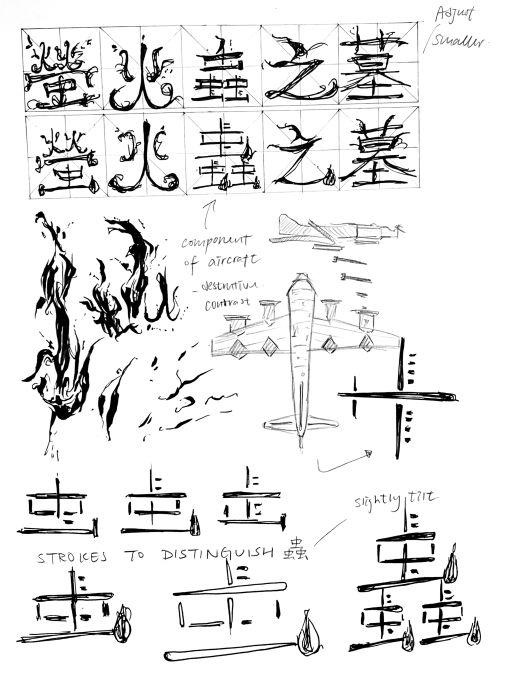 Adjust
/ smaller
螢火蟲之墓
螢火蟲之墓
component
of aircraft
- destrutive
contrast
虫 虫 虫
slightly tilt
STROKES TO DISTINGUISH 蟲
虫 虫 蟲